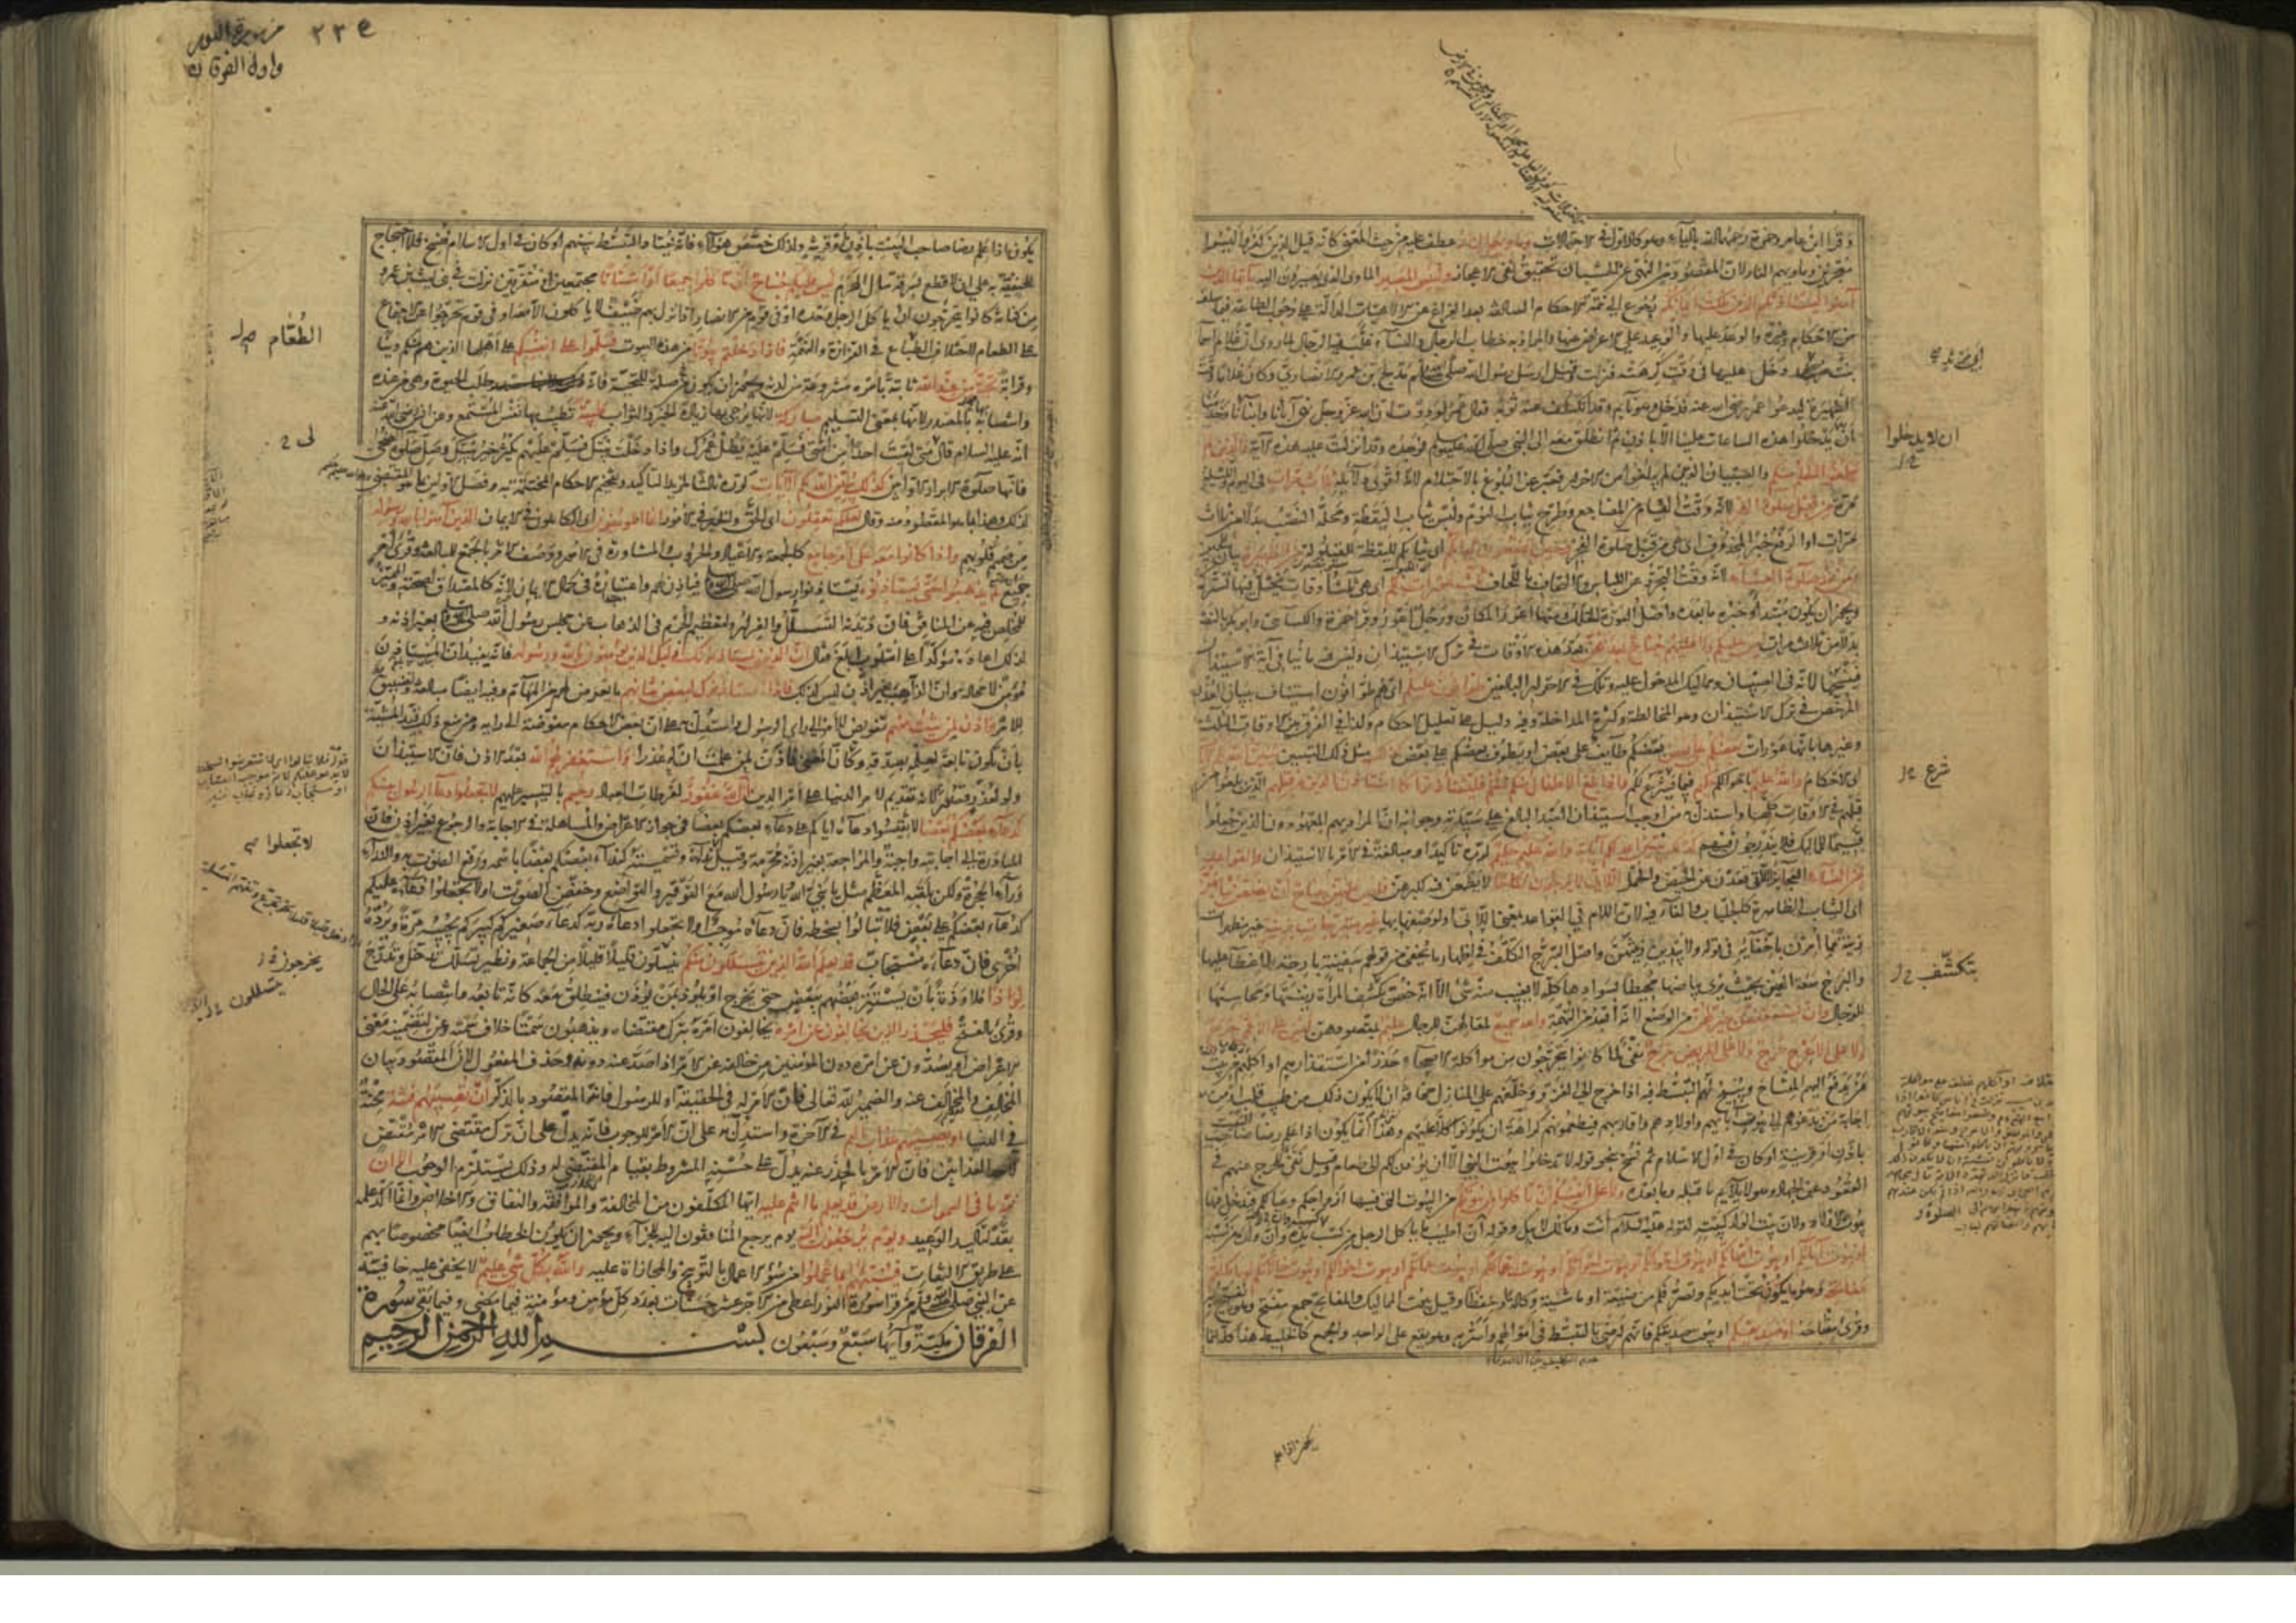 وقرأ ابن عامر وحمزة رحمهما الله بالياء وهو كالاول في الاحتمالات وماويهم النار عطف عليه من حيث المعنى كانه قيل الذين كفروا ليسوا
معجزين وماويهم النار لان المقصود من النهي عن الحسبان تحقيق نفي الاعجاز ولبئس المصير الماوى الذي يصيرون اليه يا ايها الذين
آمنوا ليستاذنكم الذين ملكت ايمانكم رجوع الى تتمة الاحكام السالفة بعد الفراغ عن الالهيات الدالة على وجوب الطاعة فيما سلف
من الاحكام وغيره والوعد عليها والوعيد على الاعراض عنها والمراد به خطاب الرجال والنساء غلب فيه الرجال لما روي ان غلام اسما
بنت مرثد دخل عليها في وقت كرهته فنزلت وقيل ارسل رسول الله صلى الله عليه وسلم مدلج بن عمرو الانصاري وكان غلاما وقت
الظهيرة ليدعو عمر رضي الله عنه فدخل وهو نائم وقد انكشف عنه ثوبه فقال عمر لوددت ان الله عز وجل نهى آباءنا وابناءنا وخدمنا
ان يدخلوا هذه الساعات علينا الا باذن ثم انطلق معه الى النبي صلى الله عليه وسلم فوجده وقد انزلت عليه هذه الاية والذين لم
يبلغوا الحلم منكم والصبيان الذين لم يبلغوا من الاحرار فعبر عن البلوغ بالاحتلام لانه اقوى دلايله ثلث مرات في اليوم والليلة
مرة من قبل صلوة الفجر لانه وقت القيام من المضاجع وطرح ثياب النوم ولبس ثياب اليقظة ومحله النصب بدلا من ثلاث
مرات او الرفع خبرا لمحذوف اي هي من قبل صلوة الفجر وحين تضعون ثيابكم اي ثيابكم لليقظة للقيلولة من الظهيرة بيان للحين
ومن بعد صلوة العشاء لانه وقت التجرد عن اللباس والالتحاف باللحاف ثلث عورات لكم اي هي ثلث اوقات يختل فيها تستركم
ويجوز ان يكون مبتدأ وخبره ما بعده واصل العورة الخلل ومنها اعور المكان ورجل اعور وقرا حمزة والكسائي وابو بكر بالنصب
بدلا من ثلاث مرات ليس عليكم ولا عليهم جناح بعدهن بعد هذه الاوقات في ترك الاستيذان وليس فيه ما ينافي آية الاستيذان
فينسخها لانه في الصبيان ومماليك المدخول عليه وتلك في الاحرار البالغين طوافون عليكم اي هم طوافون استيناف ببيان العذر
المرخص في ترك الاستيذان وهو المخالطة وكثرة المداخلة وفيه دليل على تعليل الاحكام وكذا في الفرق بين الاوقات الثلث
وغيرها بانها عورات بعضكم على بعض بعضكم طايف على بعض او يطوف بعضكم على بعض كذلك مثل ذلك التبيين يبين الله لكم الايات
اي الاحكام والله عليم باحوالكم حكيم فيما شرع لكم واذا بلغ الاطفال منكم الحلم فليستاذنوا كما استاذن الذين من قبلهم الذين بلغوا من
قبلهم في الاوقات كلها واستدل به من اوجب استيذان العبد البالغ على سيدته وجوابه ان المراد بهم المعهودون الذين جعلوا
قسيما للمماليك فلا يندرجون فيهم كذلك يبين الله لكم آياته والله عليم حكيم كرره تاكيدا ومبالغة في الامر بالاستيذان والقواعد
من النساء العجايز اللاتي قعدن عن الحيض والحمل اللاتي لا يرجون نكاحا لا يطمعن فيه لكبرهن فليس عليهن جناح ان يضعن ثيابهن
اي الثياب الظاهرة كالجلباب والفاء فيه لان اللام في القواعد بمعنى اللاتي او لوصفها بها غير متبرجات بزينة غير مظهرات
زينة مما امرن باخفائه في قوله ولا يبدين زينتهن واصل التبرج التكلف في اظهار ما يخفى من قولهم سفينة بارجة لا غطاء عليها
والبرج سعة العين بحيث يرى بياضها محيطا بسوادها كله لا يغيب منه شئ الا انه خص بكشف المرأة زينتها ومحاسنها
للرجال وان يستعففن خير لهن من الوضع لانه ابعد من التهمة والله سميع لمقالتهن للرجال عليم بمقصودهن ليس على الاعمى حرج
ولا على الاعرج حرج ولا على المريض حرج نفي لما كانوا يتحرجون من مواكلة الاصحاء حذرا من استقذارهم او اكلهم من بيت
من يدفع اليهم المفتاح ويبيح لهم التبسط فيه اذا خرج الى الغزو وخلفهم على المنازل مخافة ان لا يكون ذلك من طيب قلب او من
اجابة من يدعوهم الى بيوت آبائهم واولادهم واقاربهم فيطعمونهم كراهة ان يكونوا كلا عليهم وهذا انما يكون اذا علم رضا صاحب البيت
باذن او قرينة او كان في اول الاسلام ثم نسخ بنحو قوله لا تدخلوا بيوت النبي الا ان يؤذن لكم الى طعام وقيل نفي للحرج عنهم في
القعود عن الجهاد وهو لا يلايم ما قبله وما بعده ولا على انفسكم ان تاكلوا من بيوتكم من البيوت التي فيها ازواجكم وعيالكم فيدخل فيها
بيوت الاولاد لان بيت الولد كبيته لقوله عليه السلام انت ومالك لابيك وقوله ان اطيب ما ياكل الرجل من كسبه وان ولده من كسبه
او بيوت آبائكم او بيوت امهاتكم او بيوت اخوانكم او بيوت اخواتكم او بيوت اعمامكم او بيوت عماتكم او بيوت اخوالكم او بيوت خالاتكم او ما ملكتم
مفاتحه وهو ما يكون تحت ايديكم وتصرفكم من ضيعة او ماشية وكالة او حفظا وقيل بيوت المماليك والمفاتح جمع مفتح وهو ما يفتح به
وقرئ مفتاحه او صديقكم او بيوت صديقكم فانهم ارضى بالتبسط في اموالهم واسر به وهو يقع على الواحد والجمع كالخليط هذا كله انما
ان لا يدخلوا
شرع
يتكشف
٢٣٥
من سورة النور
واول الفرقان
يكون اذا علم رضا صاحب البيت باذن او قرينة ولذلك خصص هؤلاء فانه يعتاد التبسط بينهم او كان في اول الاسلام فنسخ فلا احتجاج
للحنفية به على ان لا قطع بسرقة مال المحرم ليس عليكم جناح ان تاكلوا جميعا او اشتاتا مجتمعين او متفرقين نزلت في بني ليث بن عمرو
من كنانة كانوا يتحرجون ان ياكل الرجل وحده او في قوم من الانصار اذا نزل بهم ضيف لا ياكلون الا معه او في قوم تحرجوا عن الاجتماع
على الطعام لاختلاف الطباع في القزازة والنهمة فاذا دخلتم بيوتا من هذه البيوت فسلموا على انفسكم على اهلها الذين هم منكم دينا
وقرابة تحية من عند الله ثابتة بامره مشروعة من لدنه ويجوز ان يكون صلة للتحية فانه طلب الحيوة وهي من عنده
وانتصابه بالمصدر لانها بمعنى التسليم مباركة لانها يرجى بها زيادة الخير والثواب طيبة تطيب بها نفس المستمع وعن انس رضي الله عنه
انه عليه السلام قال متى لقيت احدا من امتي فسلم عليه يطل عمرك واذا دخلت بيتك فسلم عليهم يكثر خير بيتك وصل صلوة الضحى
فانها صلوة الابرار الاوابين كذلك يبين الله لكم الايات كرره ثالثا لمزيد التاكيد وتفخيم الاحكام المختتمة به وفصل الاولين بما هو المقتضي
لذلك وهذا بما هو المقصود منه وقال لعلكم تعقلون اي الحق والخير في الامور انما المؤمنون اي الكاملون في الايمان الذين آمنوا بالله ورسوله
من صميم قلوبهم واذا كانوا معه على امر جامع كالجمعة والاعياد والحروب والمشاورة في الامور ووصف الامر بالجمع للمبالغة وقرئ امر
جميع لم يذهبوا حتى يستاذنوه يستاذنوا رسول الله صلى الله عليه وسلم فياذن لهم واعتباره في كمال الايمان لانه كالمصداق لصحته والمميز
للمخلص فيه عن المنافق فان ديدنه التسلل والفرار ولتعظيم الجرم في الذهاب عن مجلس رسول الله صلى الله عليه وسلم بغير اذنه و
لذلك اعاده مؤكدا على اسلوب ابلغ فقال ان الذين يستاذنونك اولئك الذين يؤمنون بالله ورسوله فانه يفيد ان المستاذن
مؤمن لا محالة وان الذاهب بغير اذن ليس كذلك فاذا استاذنوك لبعض شانهم ما يعرض لهم من المهام وفيه ايضا مبالغة وتضييق
للامر فاذن لمن شئت منهم تفويض للامر الى راي الرسول واستدل به على ان بعض الاحكام مفوضة الى رايه ومن منع ذلك قيد المشيئة
بان تكون تابعة لعلمه بصدقه وكان المعنى فاذن لمن علمت ان له عذرا واستغفر لهم الله بعد الاذن فان الاستيذان
ولو لعذر قصور لانه تقديم لامر الدنيا على امر الدين ان الله غفور لفرطات العباد رحيم بالتيسير عليهم لا تجعلوا دعاء الرسول بينكم
كدعاء بعضكم بعضا لا تقيسوا دعاءه اياكم على دعاء بعضكم بعضا في جواز الاعراض والمساهلة في الاجابة والرجوع بغير اذن فان
المبادرة الى اجابته واجبة والمراجعة بغير اذنه محرمة وقيل نداءه وتسميته كنداء بعضكم بعضا باسمه ورفع الصوت به والنداء
وراء الحجرة ولكن بلقبه المعظم مثل يا نبي الله يا رسول الله مع التوقير والتواضع وخفض الصوت اولا تجعلوا دعاءه عليكم
كدعاء بعضكم على بعض فلا تبالوا بسخطه فان دعاءه موجب او لا تجعلوا دعاءه ربه كدعاء صغيركم كبيركم يجيبه مرة ويرده
اخرى فان دعاءه مستجاب قد يعلم الله الذين يتسللون منكم ينسلون قليلا قليلا من الجماعة ونظير تسلل تدخل وتدرج
لواذا ملاوذة بان يستتر بعضهم ببعض حتى يخرج او يلوذ بمن يؤذن فينطلق معه كانه تابعه وانتصابه على الحال
وقرئ بالفتح فليحذر الذين يخالفون عن امره يخالفون امره بترك مقتضاه ويذهبون سمتا خلاف سمته وعن لتضمنه معنى
الاعراض او يصدون عن امره دون المؤمنين من خالفه عن الامر اذا صد عنه دونه وحذف المفعول لان المقصود بيان
المخالف والمخالف عنه والضمير لله تعالى فان الامر له في الحقيقة او للرسول فانه المقصود بالذكر ان تصيبهم فتنة محنة
في الدنيا او يصيبهم عذاب اليم في الاخرة واستدل به على ان الامر للوجوب فانه يدل على ان ترك مقتضى الامر مقتض
لاحد العذابين فان الامر بالحذر عنه يدل على حسنه المشروط بقيام المقتضي له وذلك يستلزم الوجوب الا ان
لله ما في السموات والارض قد يعلم ما انتم عليه ايها المكلفون من المخالفة والموافقة والنفاق والاخلاص وانما اكد علمه
بقد لتاكيد الوعيد ويوم يرجعون اليه يوم يرجع المنافقون اليه للجزاء ويجوز ان يكون الخطاب ايضا مخصوصا بهم
على طريق الالتفات فينبئهم بما عملوا من سوء الاعمال بالتوبيخ والمجازاة عليه والله بكل شئ عليم لا يخفى عليه خافية
عن النبي صلى الله عليه وسلم من قرا سورة النور اعطي من الاجر عشر حسنات بعدد كل مؤمن ومؤمنة فيما مضى وفيما بقي سورة
الفرقان مكية وآيها سبع وسبعون بسم الله الرحمن الرحيم
الطعام
لا تجعلوا
يخرجون
يتسللون